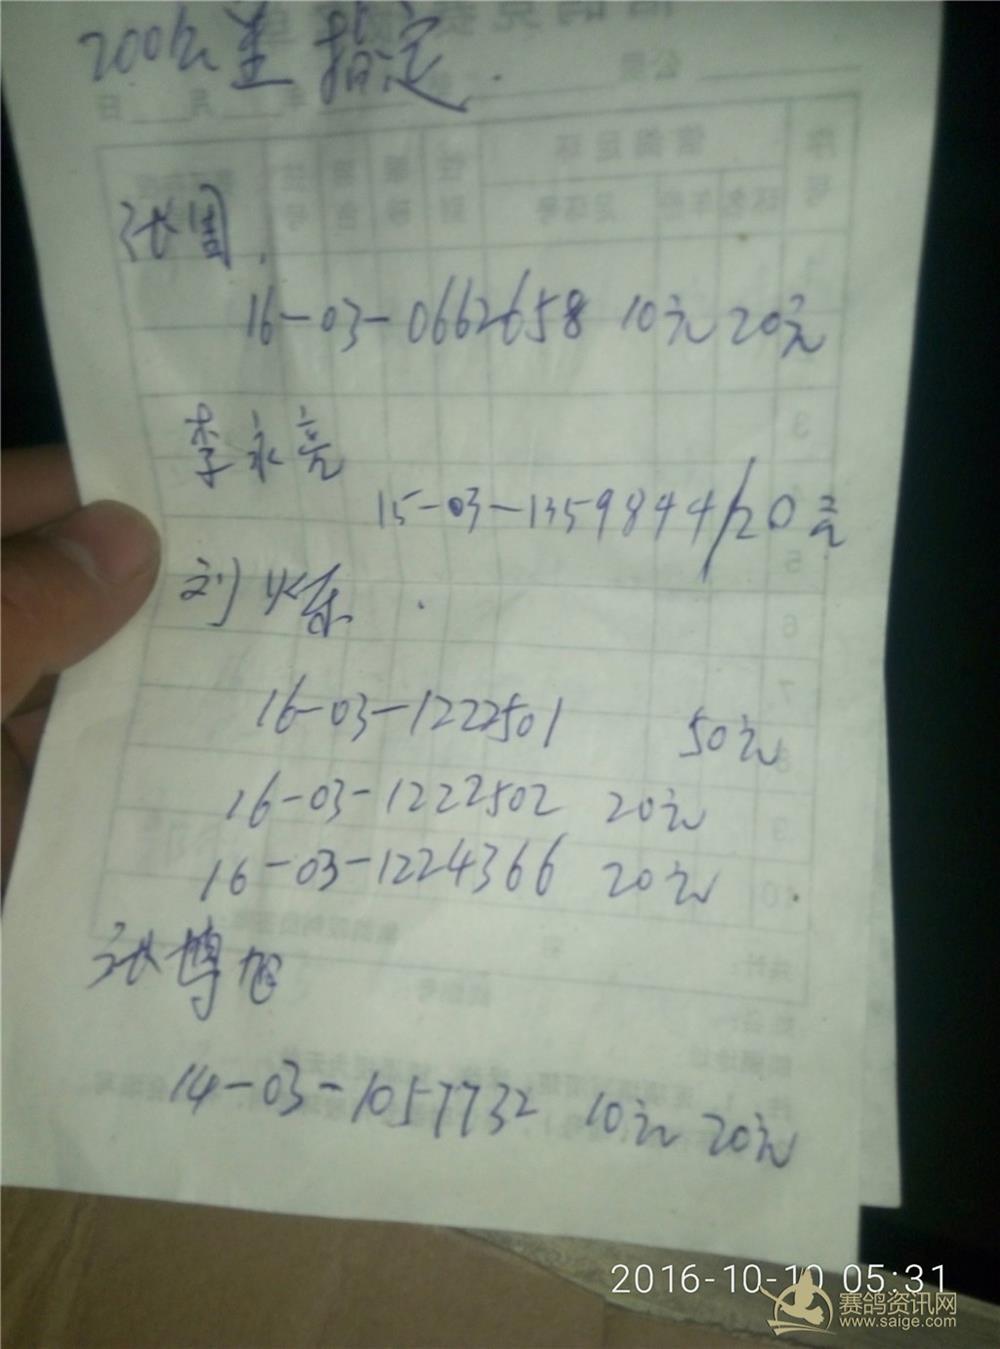 200公里 指定.
张周.
16-03-0662658 10元 20元
李永亮
15-03-1359844/20元
刘
16-03-1222501 50元
16-03-1222502 20元
16-03-1224366 20元
张博旭
14-03-1057732 10元 20元
2016-10-10 05:31
赛鸽资讯网
www.saige.com